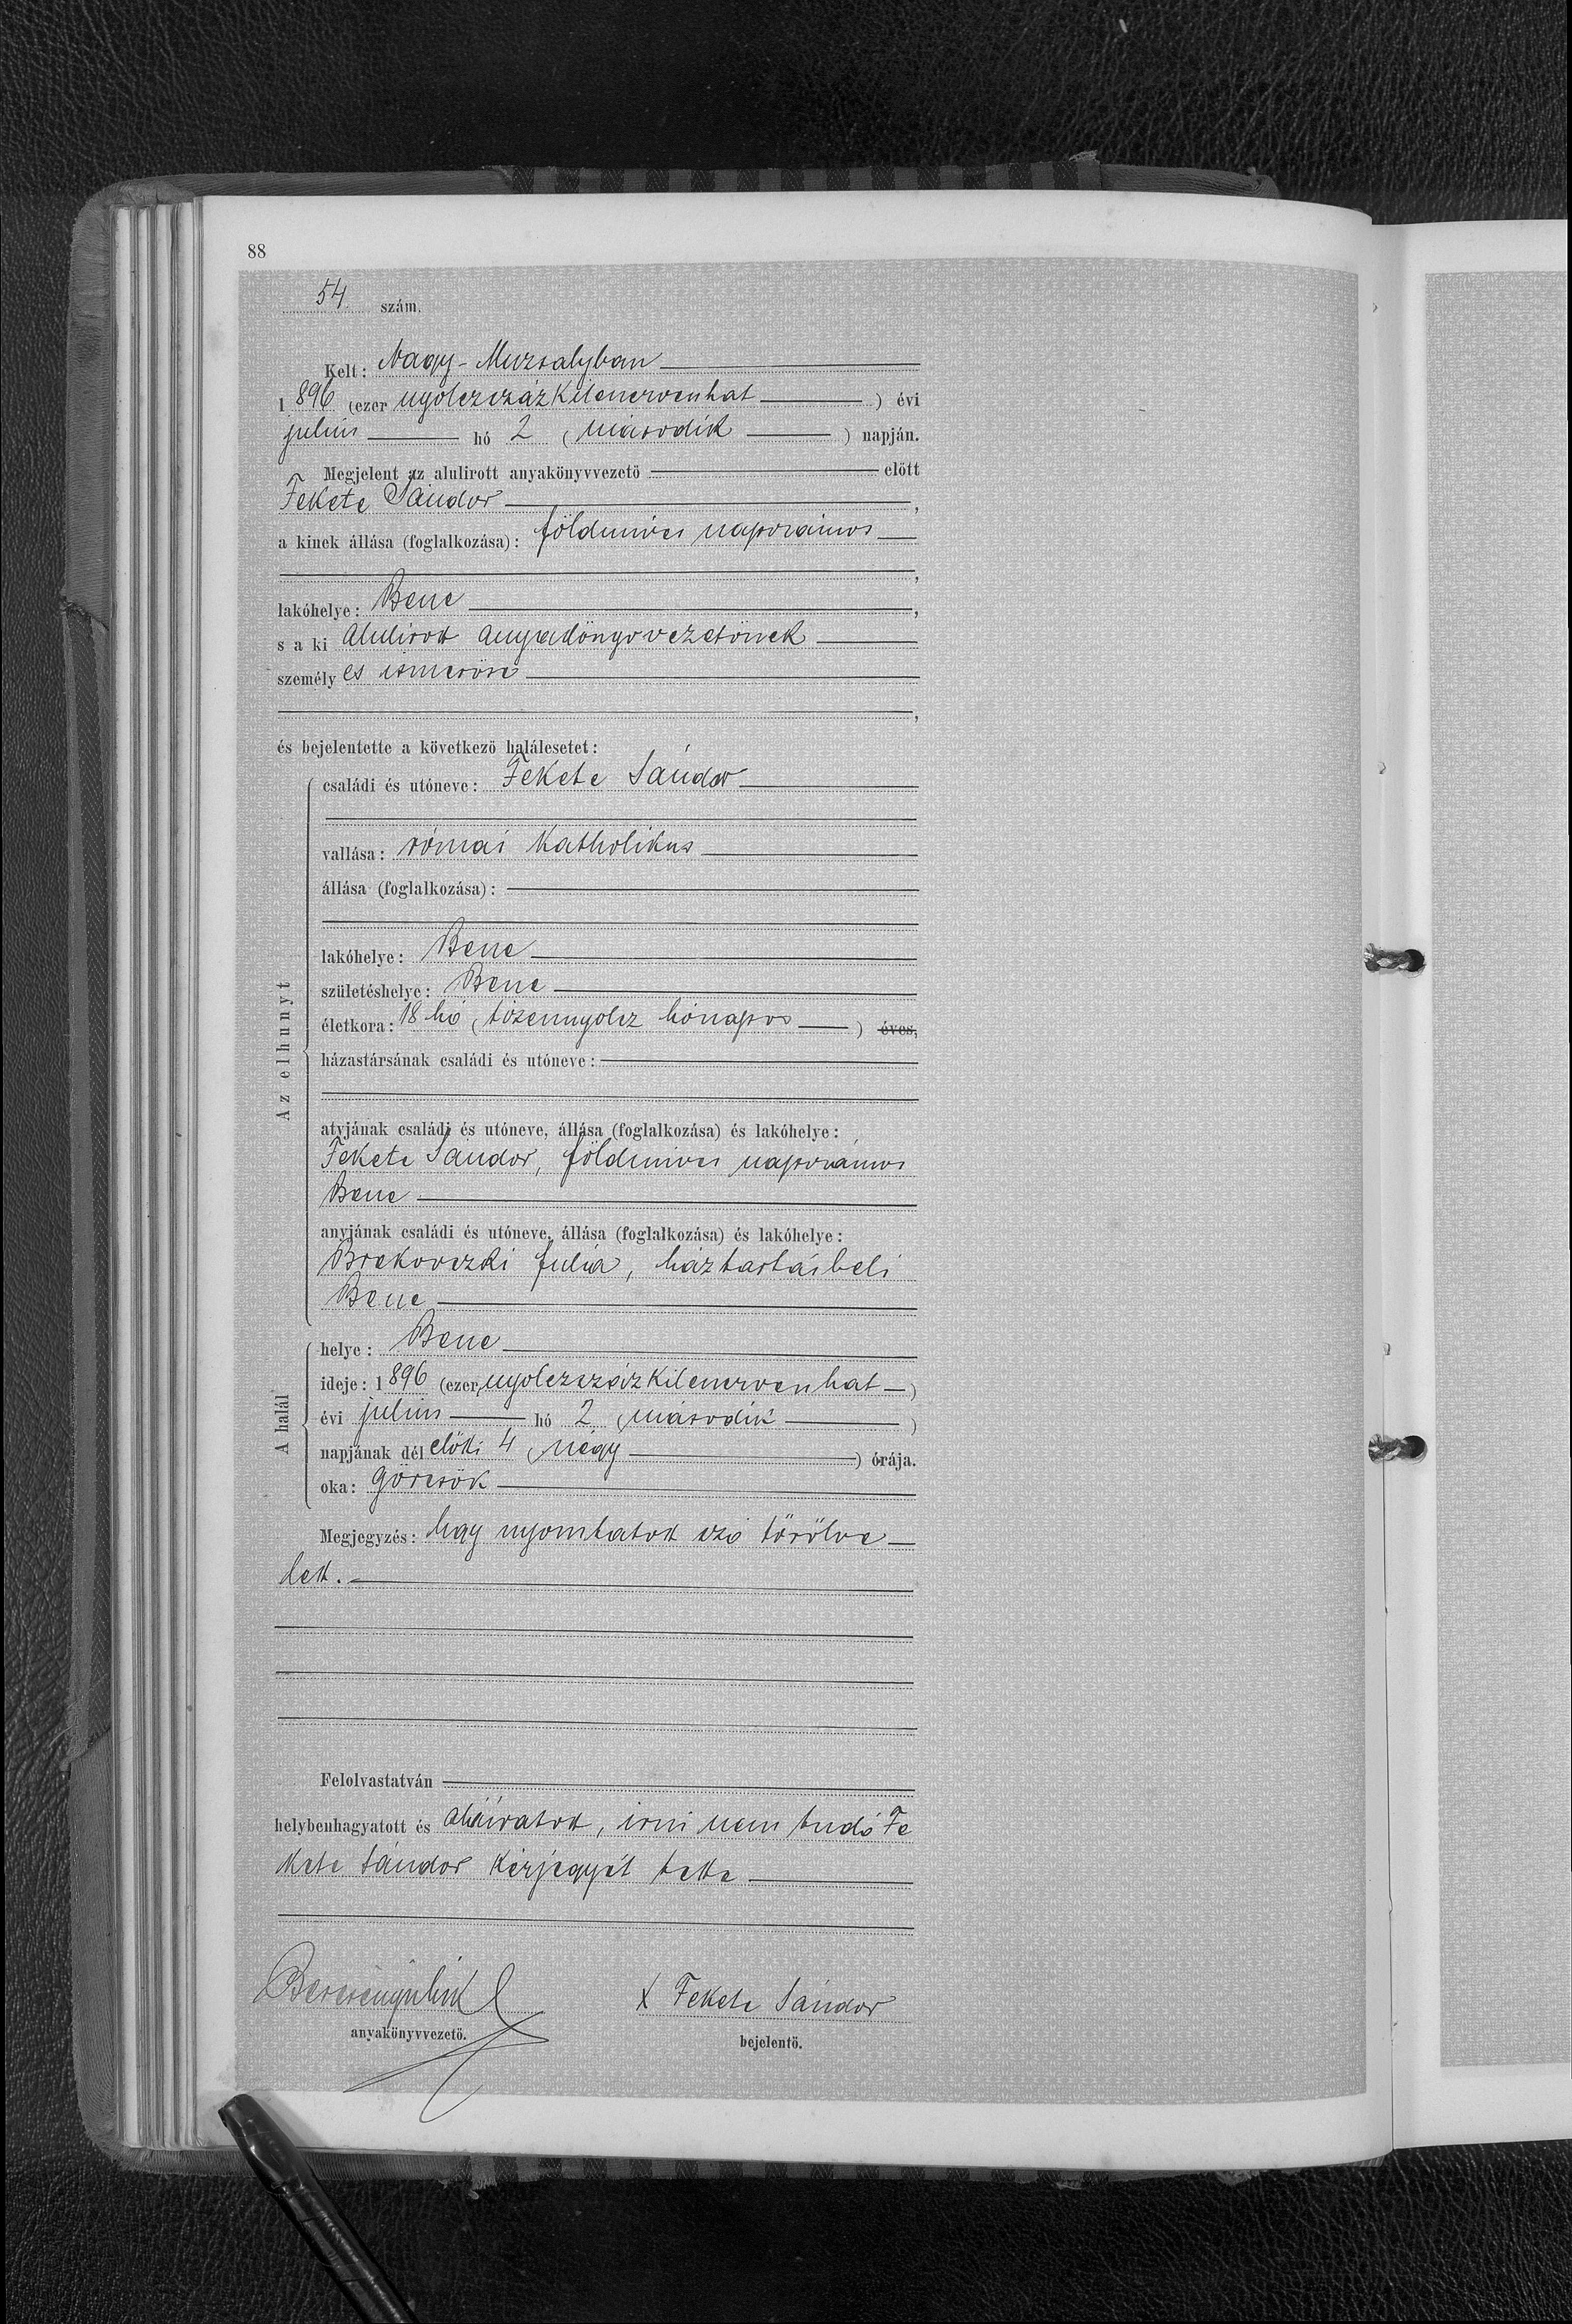 88
54 szám.
Kelt: Nagy-Muzsalyban
1896 (ezer nyolczszázkilenczvenhat) évi
julius hó 2 (második) napján.
Megjelent az alulirott anyakönyvvezető előtt
Fekete Sándor,
a kinek állása (foglalkozása): földmíves napszámos
,
lakóhelye: Bene,
s a ki alulirott anyakönyvvezetőnek
személyes ismerőse
,
és bejelentette a következő halálesetet:
Az elhunyt
családi és utóneve: Fekete Sándor
vallása: római katholikus
állása (foglalkozása):
lakóhelye: Bene
születéshelye: Bene
életkora: 18 hó (tizennyolcz hónapos) éves,
házastársának családi és utóneve:
atyjának családi és utóneve, állása (foglalkozása) és lakóhelye:
Fekete Sándor, földmíves napszámos
Bene
anyjának családi és utóneve, állása (foglalkozása) és lakóhelye:
Brekovszki Julia, háztartásbeli
Bene
A halál
helye: Bene
ideje: 1896 (ezer nyolczszázkilenczvenhat)
évi julius hó 2 (második)
napjának délelőtti 4 (négy) órája.
oka: görcsök
Megjegyzés: Egy nyomtatott szó törölve
lett.
Felolvastatván
helybenhagyatott és aláiratott, irni nem tudó Fe
kete Sándor kézjegyét tette
X Fekete Sándor
anyakönyvvezető.
bejelentő.